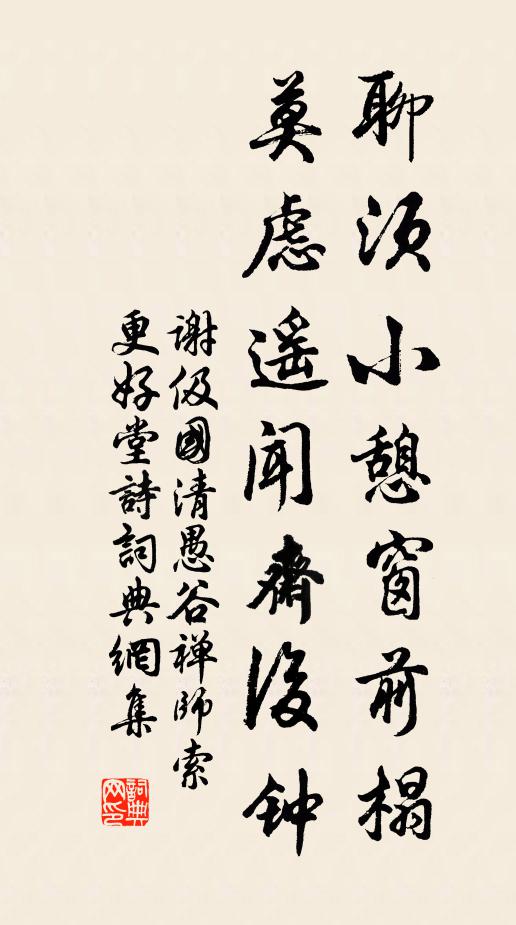 聊须小憩窗前榻
莫虑遥闻斋后钟
谢伋國清愚谷禅師索
更好堂詩詞典網集
詞典网印